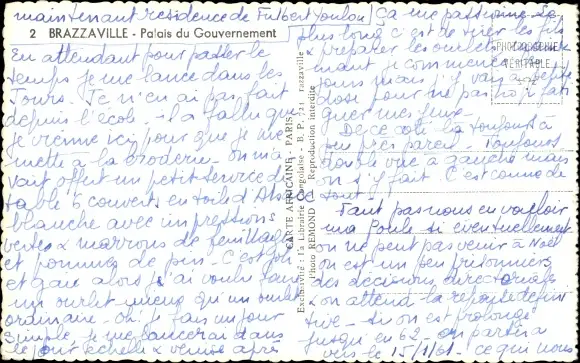 maintenant résidence de Fulbert Youlou
2 BRAZZAVILLE - Palais du Gouvernement
En attendant pour passer le
temps je me lance dans les
Jours. Je n'en ai pas fait
depuis l'école. Il a fallu que
je vienne ici pour que je me
mette à la broderie. On m'a
vait offert un petit service de
table 6 couverts en toile d'Alsace
blanche avec impressions
vertes & marrons de feuillage
et pommes de pins. C'est joli
et gai alors j'ai voulu faire
un ourlet mieux qu'un ourlet
ordinaire. Oh! je fais un jour
simple, je me lancerai dans
le jour échelle & venise après
CARTE AFRICAINE - PARIS
Exclusivité : la Librairie Congolaise - B. P. 724 Brazzaville
Photo REMOND Reproduction interdite
PHOTOGRAPHIE
VÉRITABLE
Ça me passionne. Le
plus long c'est de tirer les fils
& préparer les ourlets
maint je commence
jours mais j'y vais à petite
dose pour ne pas trop fati
guer mes yeux.
De ce côté là toujours à
peu près pareil. Toujours
double vue à gauche mais
on s'y fait. C'est comme de
tout.
Faut pas nous en vouloir
ma Poule si éventuellement
on ne peut pas venir à Noël
on est un peu prisonniers
des décisions directoriales
on attend la réponse défini
tive - si on est prolongé
jusqu'en 62, on partira
vers le 1/61 ce qui nous